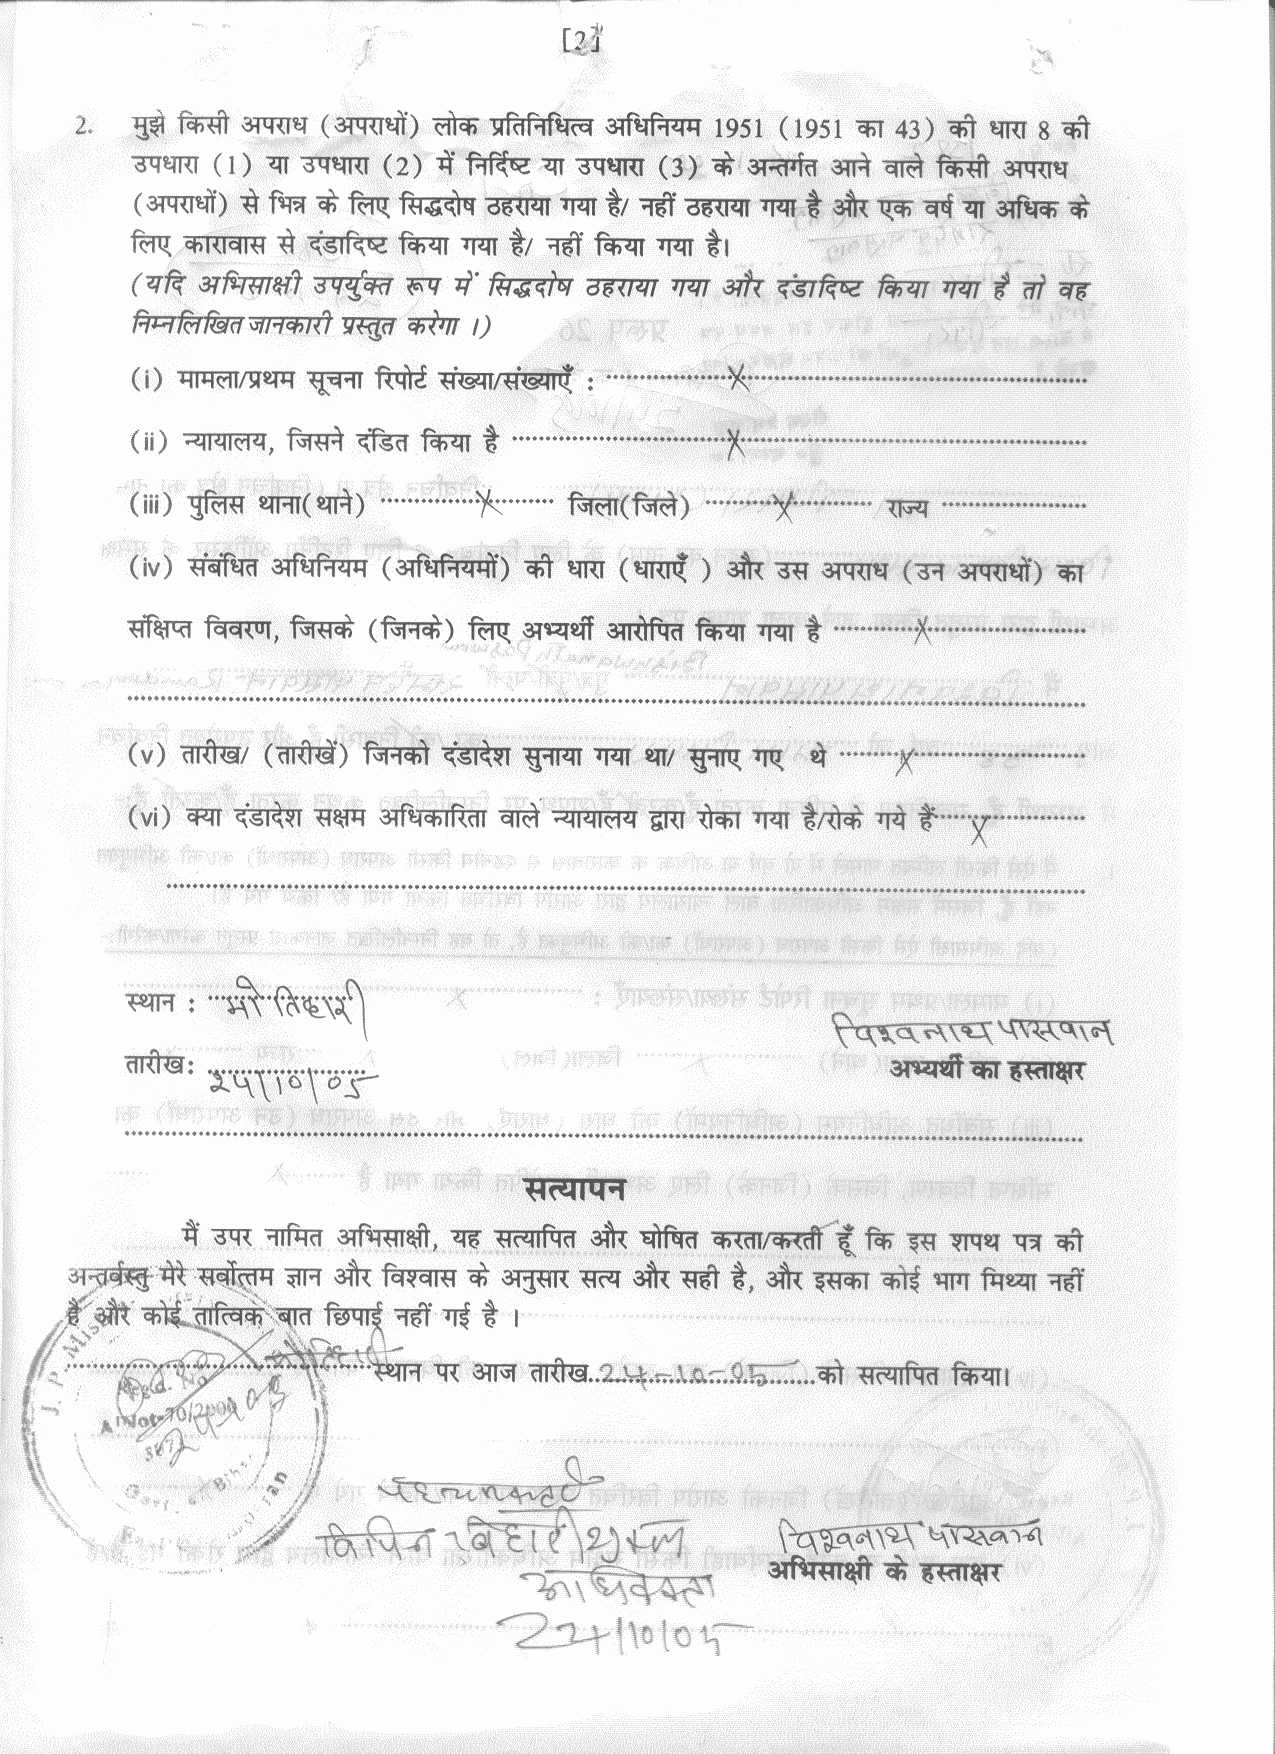 [2]
2. मुझे किसी अपराध (अपराधों) लोक प्रतिनिधित्व अधिनियम 1951 (1951 का 43) की धारा 8 की
उपधारा (1) या उपधारा (2) में निर्दिष्ट या उपधारा (3) के अन्तर्गत आने वाले किसी अपराध
(अपराधों) से भिन्न के लिए सिद्धदोष ठहराया गया है/ नहीं ठहराया गया है और एक वर्ष या अधिक के
लिए कारावास से दंडादिष्ट किया गया है/ नहीं किया गया है।
(यदि अभिसाक्षी उपर्युक्त रूप में सिद्धदोष ठहराया गया और दंडादिष्ट किया गया है तो वह
निम्नलिखित जानकारी प्रस्तुत करेगा ।)
(i) मामला/प्रथम सूचना रिपोर्ट संख्या/संख्याएँ : X
(ii) न्यायालय, जिसने दंडित किया है X
(iii) पुलिस थाना(थाने) X जिला(जिले) X राज्य
(iv) संबंधित अधिनियम (अधिनियमों) की धारा (धाराएँ ) और उस अपराध (उन अपराधों) का
संक्षिप्त विवरण, जिसके (जिनके) लिए अभ्यर्थी आरोपित किया गया है X
(v) तारीख/ (तारीखें) जिनको दंडादेश सुनाया गया था/ सुनाए गए थे X
(vi) क्या दंडादेश सक्षम अधिकारिता वाले न्यायालय द्वारा रोका गया है/रोके गये हैं X
स्थान : मोतिहारी
विश्वनाथ पासवान
तारीख: २५/10/05
अभ्यर्थी का हस्ताक्षर
सत्यापन
मैं उपर नामित अभिसाक्षी, यह सत्यापित और घोषित करता/करती हूँ कि इस शपथ पत्र की
अन्तर्वस्तु मेरे सर्वोत्तम ज्ञान और विश्वास के अनुसार सत्य और सही है, और इसका कोई भाग मिथ्या नहीं
है और कोई तात्विक बात छिपाई नहीं गई है ।
मोतिहारी स्थान पर आज तारीख २५-10-05 को सत्यापित किया।
J. P. Mis
Regd. No
70/2000
Govt. of Bihar
विपिन बिहारी शुक्ल
विश्वनाथ पासवान
अधिवक्ता
अभिसाक्षी के हस्ताक्षर
२५/10/05